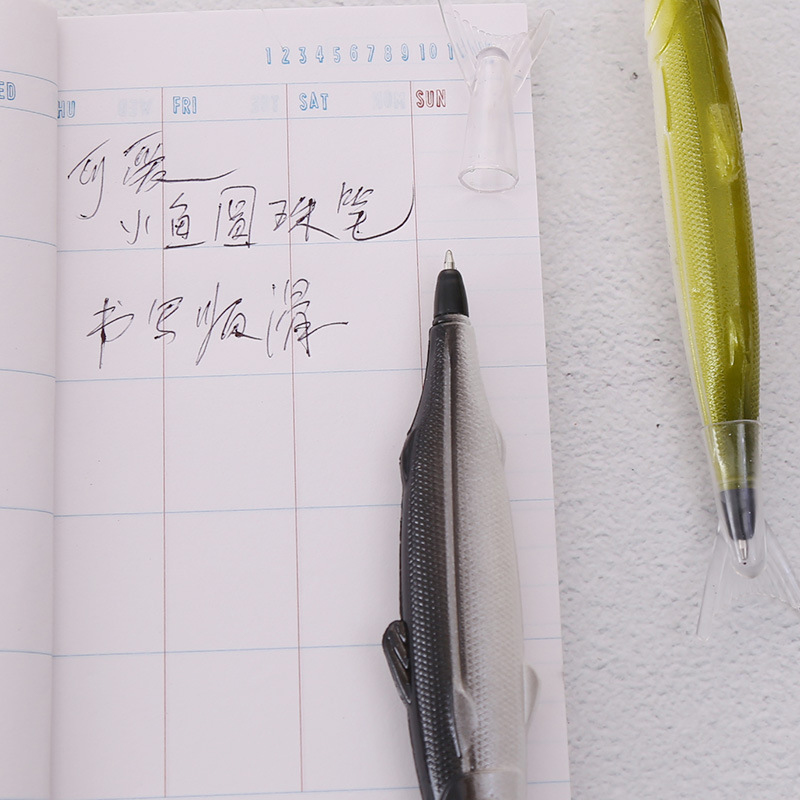 1 2 3 4 5 6 7 8 9 10 1
ED
HU FRI SAT SUN
可爱
小鱼圆珠笔
书写顺滑